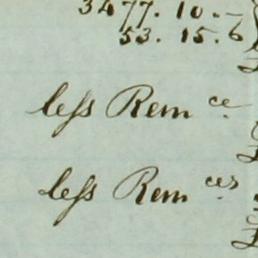 3477. 10. -
53. 15. 6
less Rem ce
less Rem ces